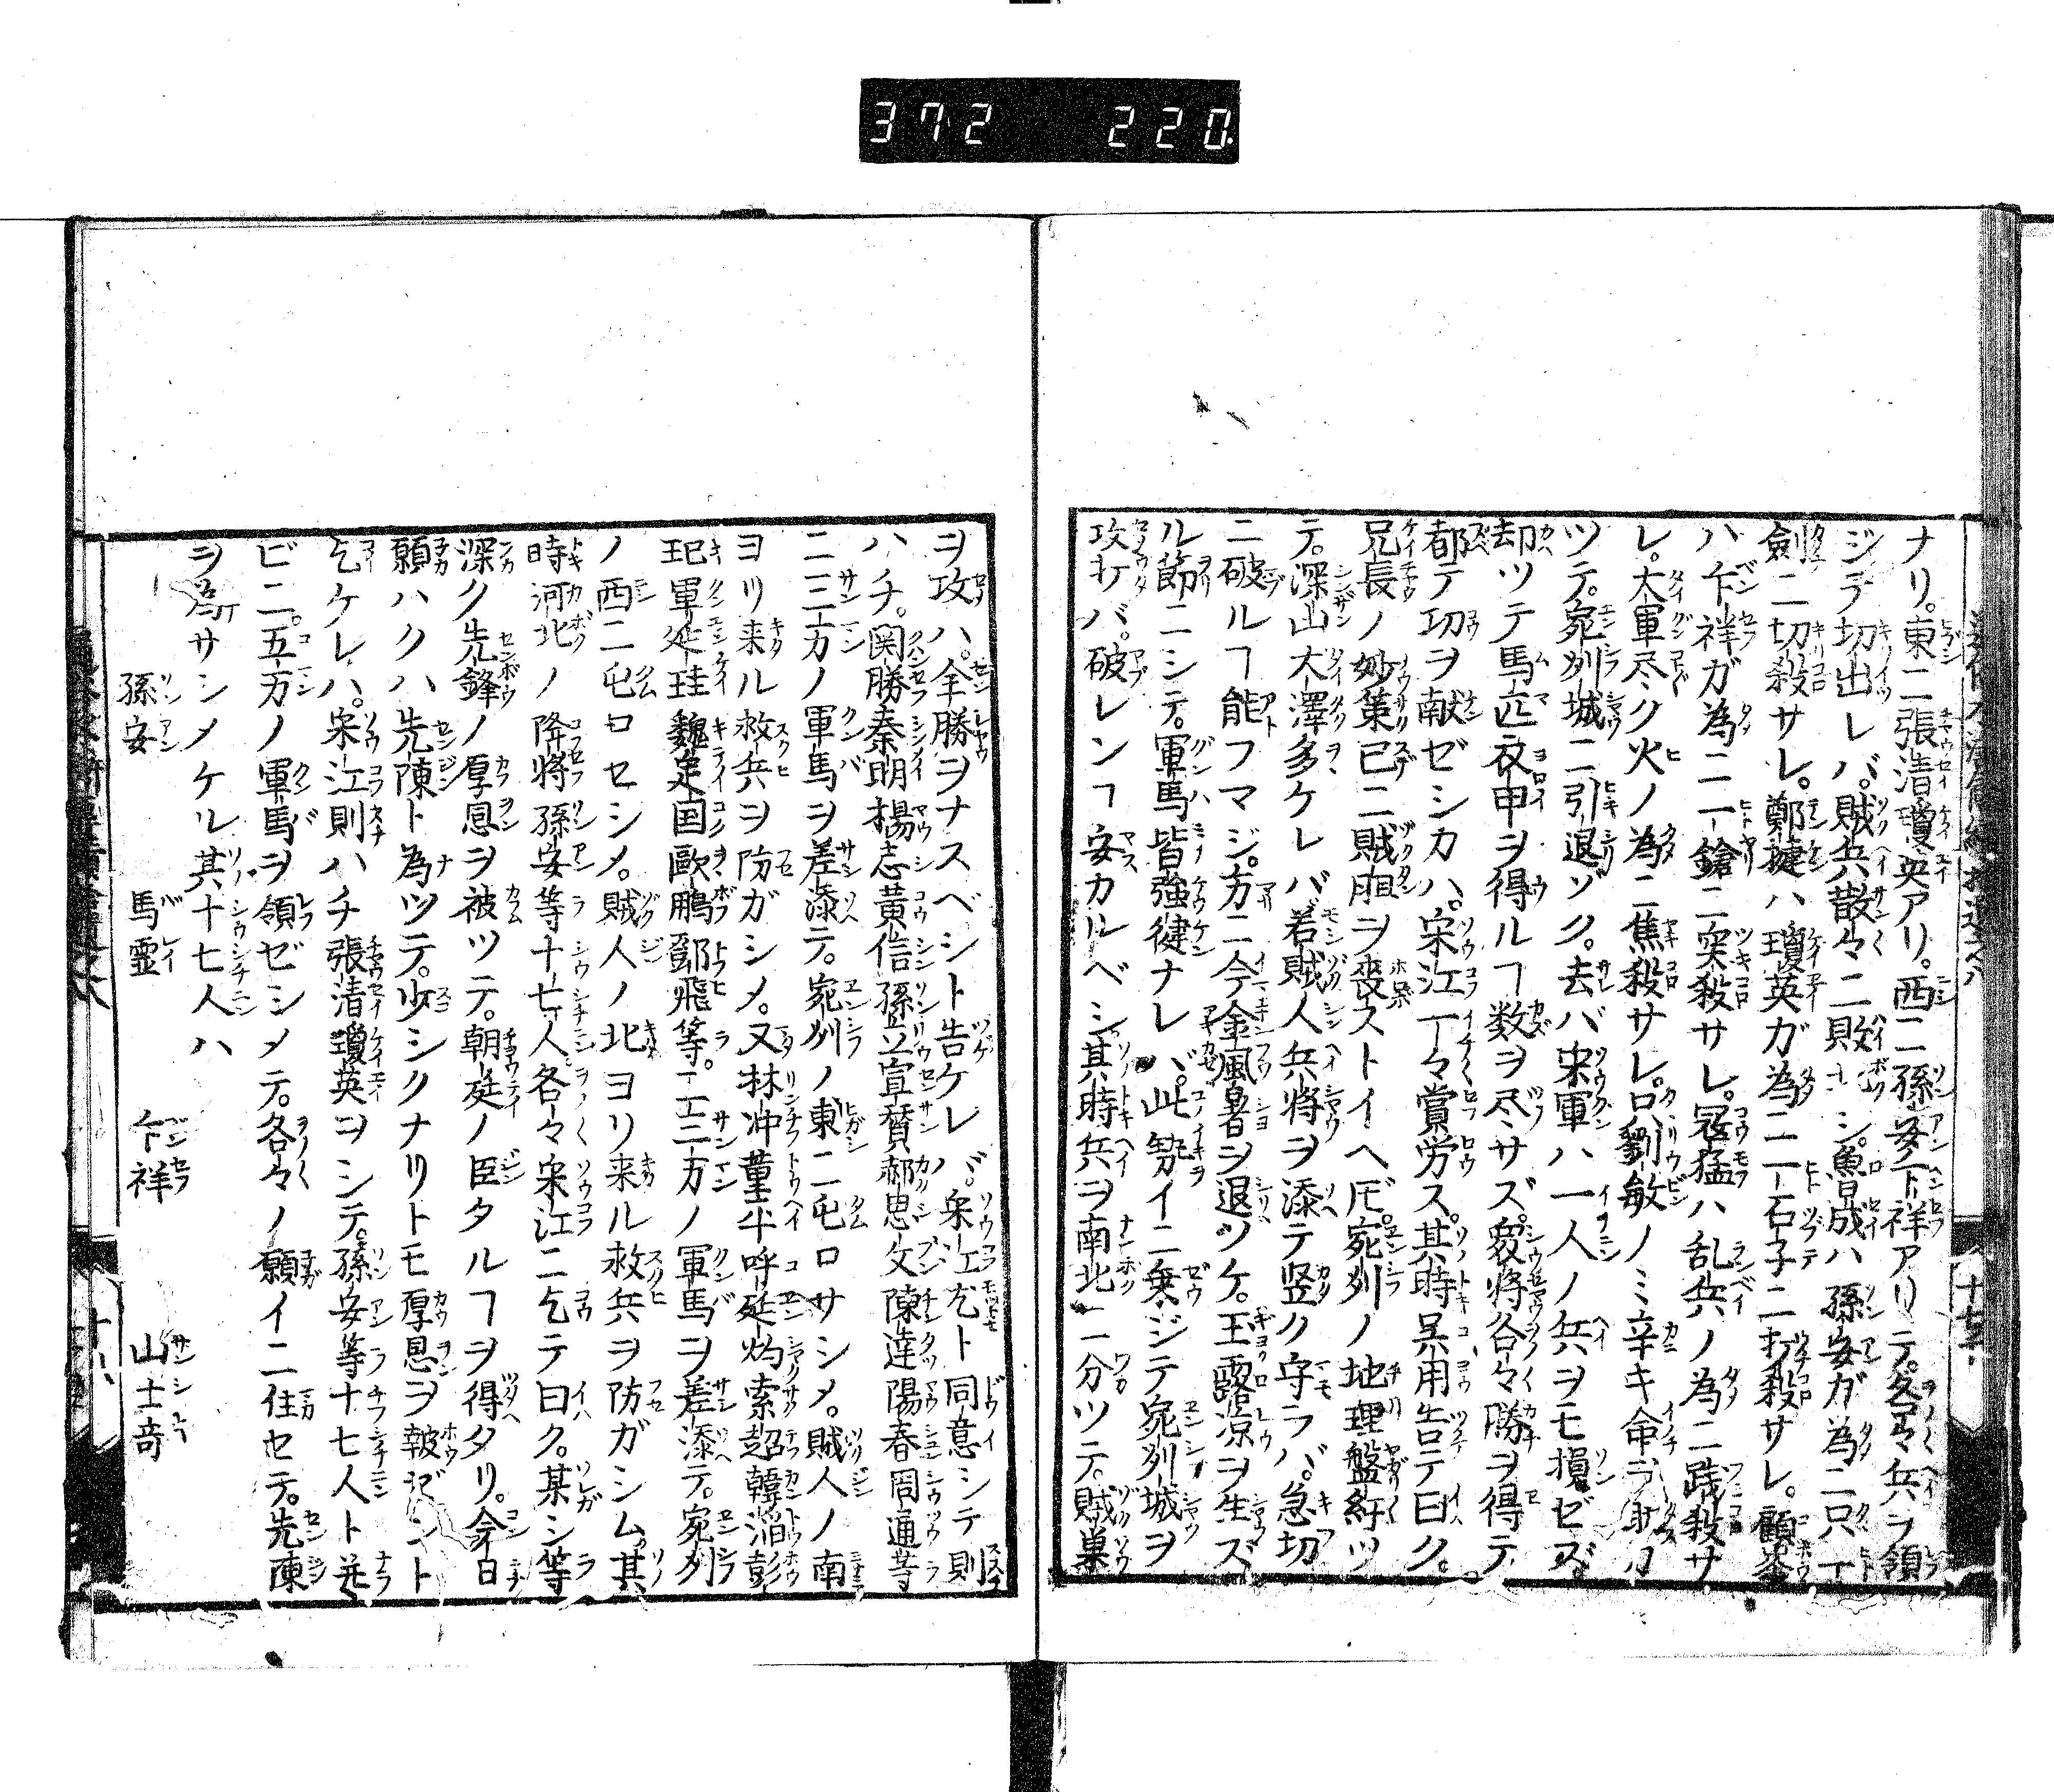 372 220
ナリ。東ニ張清瓊英アリ。西ニ孫安卞祥アリテ。各々兵ヲ領
ジテ切出レバ。賊兵散々ニ敗北シ。魯成ハ孫安ガ為ニ只一
劍ニ切殺サレ。鄭捷ハ瓊英ガ為ニ一石子ニ打殺サレ。顧岑
ハ卞祥ガ為ニ一鎗ニ突殺サレ。冦猛ハ乱兵ノ為ニ踐殺サ
レ。大軍尽ク火ノ為ニ焦殺サレ。只劉敏ノミ辛キ命ヲ助カ
ツテ。宛州城ニ引退ゾク。去バ宋軍ハ一人ノ兵ヲモ損ゼズ。
却ツテ馬匹衣甲ヲ得ルヿ数ヲ尽サズ。衆将各々勝ヲ得テ
都テ功ヲ献ゼシカハ。宋江一々賞労ス。其時呉用告テ曰ク。
兄長ノ妙策已ニ賊胆ヲ喪ストイヘ𪜈。宛州ノ地理盤紆ツ
テ。深山大澤多ケレバ。若賊人兵将ヲ添テ竪ク守ラバ。急切
ニ破ルヿ能フマジ。方ニ今金風暑ヲ退ツケ。玉露凉ヲ生ズ
ル節ニシテ。軍馬皆強健ナレバ。此勢イニ乗ジテ宛州城ヲ
攻打バ。破レンヿ安カルベシ。其時兵ヲ南北ニ分ツテ。賊巣
ヲ攻ハ。全勝ヲナスベシト告ケレバ。宋江尤ト同意シテ則
ハチ。関勝秦明楊志黄信孫立宣賛郝思文陳達陽春周通等
ニ三万ノ軍馬ヲ差添テ。宛州ノ東ニ屯ロサシメ。賊人ノ南
ヨリ来ル救兵ヲ防ガシメ。又林冲董平呼延灼索超韓滔彭
玘軍延珪魏定国歐鵬鄧飛等。ニ三万ノ軍馬ヲ差添テ。宛州
ノ西ニ屯ロセシメ。賊人ノ北ヨリ来ル救兵ヲ防ガシム。其
時河北ノ降将孫安等十七人。各々宋江ニ乞テ曰ク。某シ等
深ク先鋒ノ厚恩ヲ被ツテ。朝廷ノ臣タルヿヲ得タリ。今日
願ハクハ先陳ト為ツテ。少シクナリトモ厚恩ヲ報ゼント
乞ケレハ。宋江則ハチ張清瓊英ヲシテ。孫安等十七人ト並
ビニ。五万ノ軍馬ヲ領ゼシメテ。各々ノ願イニ住セテ。先陳
ヲ為サシメケル其十七人ハ
孫安　馬霊　卞祥　山士奇